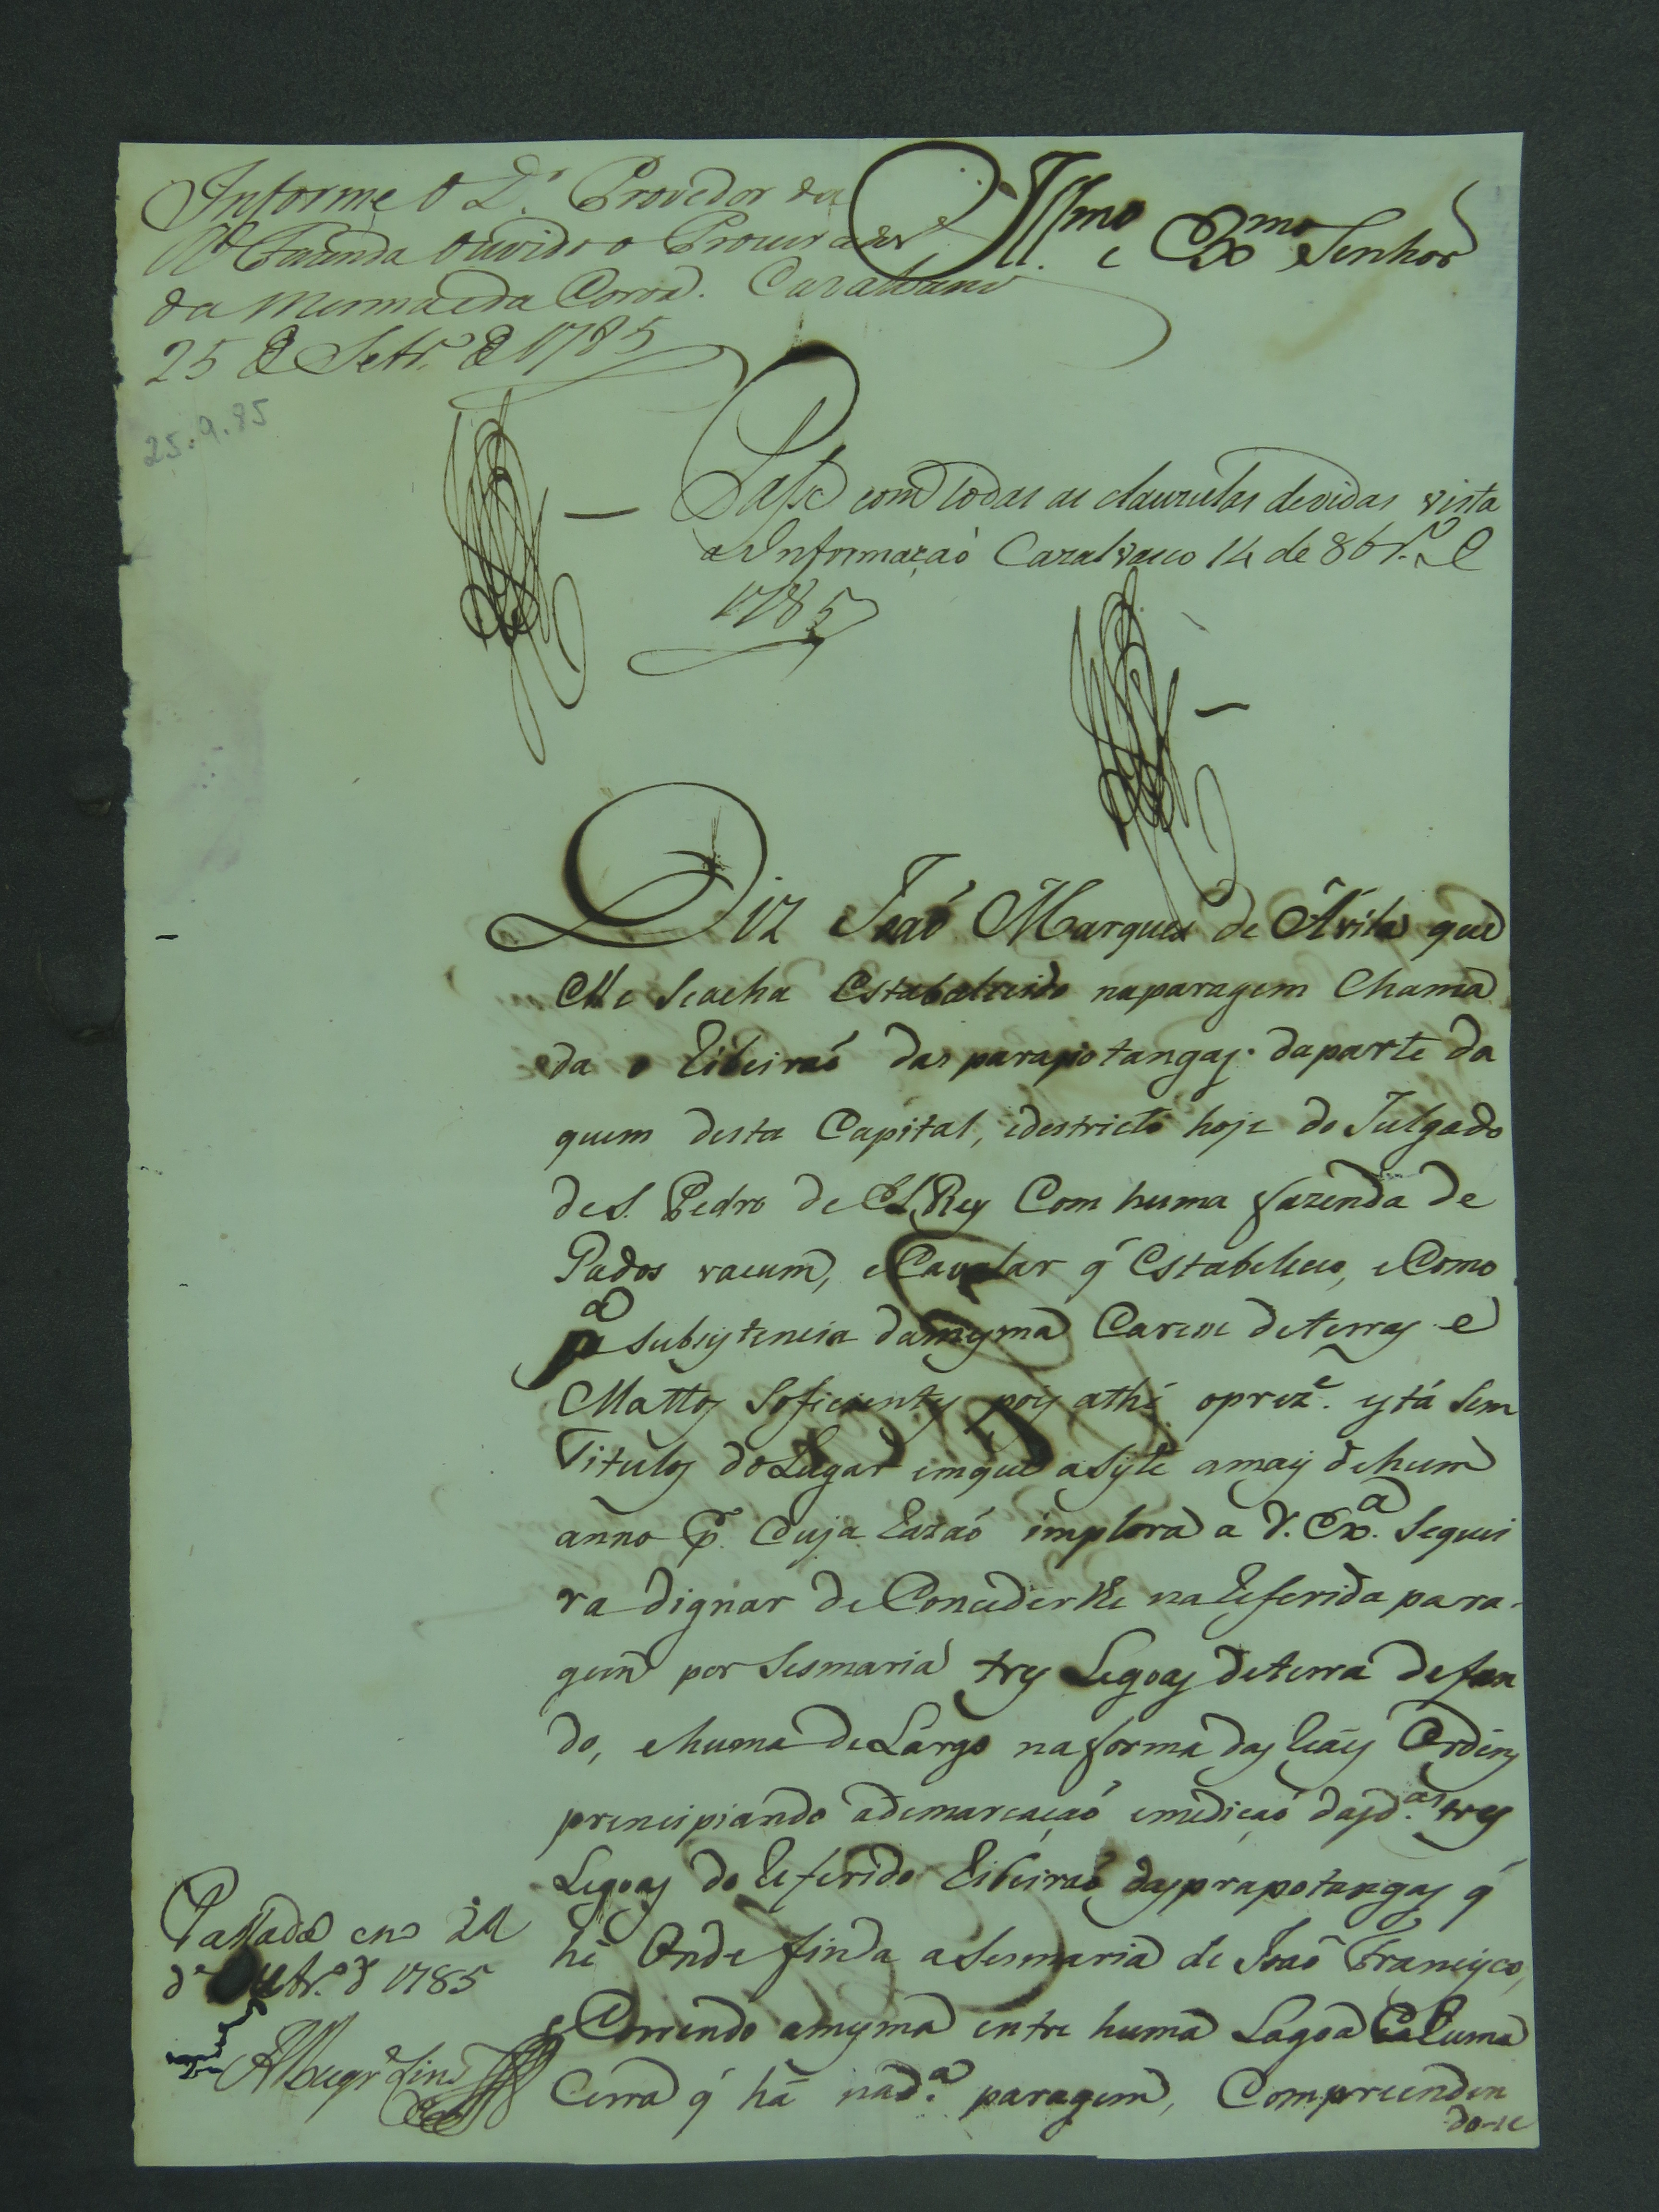 Informe o D.r Provedor da
R.l Fazenda ouvido o Procurador
da mesma e da Coroa. Cazalvasco
25 de Setr.o de 1785
25.9.85
Ill.mo e Ex.mo Senhor
Passe com todas as clauzulas devidas vista
a Informação Cazalvasco 14 de 8br.o de
1785
Diz João Marques de Ávila que
elle se acha Estabalecido naparagem Chama
da o Ribeiraõ das parapiotangas. daparte da
quem desta Capital, edestricto hoje do Julgado
de S. Pedro de El Rey Com huma fazenda de
Gados vacum, eCavalar q' Estabeleceo, eComo
p.a subsistencia damesma Carece deterras e
Mattos soficientes pois athé oprez.e está sem
Titulos do Lugar emque asiste amais dehum
anno P.r Cuja Razaõ implora a V. Ex.a sequei
ra dignar de Concederlhe na Referida para-
gem por Sesmaria tres Legoas deterra defun
do, ehuma deLargo naforma das Reais Ordens
principiando ademarcaçaõ emediçaõ dasd.as tres
Legoas do Referido Ribeiraõ dasprapotangas q'
hé Onde finda aSesmaria de Joaõ Francisco,
eCorrendo amesma entre huma Lagoa
Cerra q' há nad.a paragem, Comprienden
do-se
Passada em 24
de Outr.o de 1785